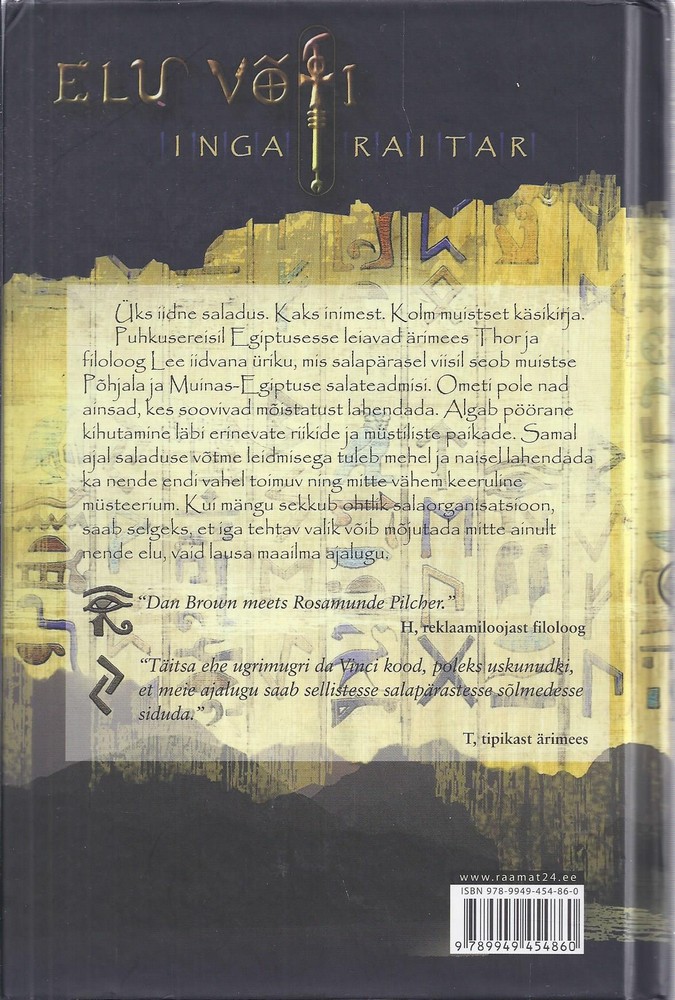 ELU VÕTI
INGA RAITAR
Üks iidne saladus. Kaks inimest. Kolm muistset käsikirja.
Puhkusereisil Egiptusesse leiavad ärimees Thor ja
filoloog Lee iidvana üriku, mis salapärasel viisil seob muistse
Põhjala ja Muinas-Egiptuse salateadmisi. Ometi pole nad
ainsad, kes soovivad mõistatust lahendada. Algab pöörane
kihutamine läbi erinevate riikide ja müstiliste paikade. Samal
ajal saladuse võtme leidmisega tuleb mehel ja naisel lahendada
ka nende endi vahel toimuv ning mitte vähem keeruline
müsteerium. Kui mängu sekkub ohtlik salaorganisatsioon,
saab selgeks, et iga tehtav valik võib mõjutada mitte ainult
nende elu, vaid lausa maailma ajalugu.
“Dan Brown meets Rosamunde Pilcher.”
H, reklaamiloojast filoloog
“Täitsa ehe ugrimugri da Vinci kood, poleks uskunudki,
et meie ajalugu saab sellistesse salapärastesse sõlmedesse
siduda.”
T, tipikast ärimees
www.raamat24.ee
ISBN 978-9949-454-86-0
9 789949 454860